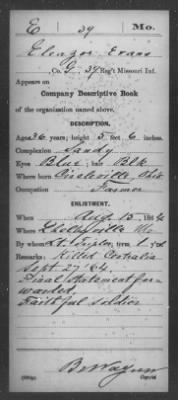 E 39 Mo.
Eleazor Evans
Co. G, 39 Reg't Missouri Inf.
Appears on
Company Descriptive Book
of the organization named above.
DESCRIPTION.
Aged 36 years; height 5 feet 6 inches.
Complexion Sandy
Eyes Blue; hair Blk
Where born Circleville, Ohio
Occupation Farmer
ENLISTMENT.
When Aug. 15, 1864
Where Shelbyville Mo
By whom Lt. ; term 1 y'rs
Remarks: Killed Centralia
Sept. 27 '64.
Final Statement for-
warded.
Faithful soldier
Copyist.